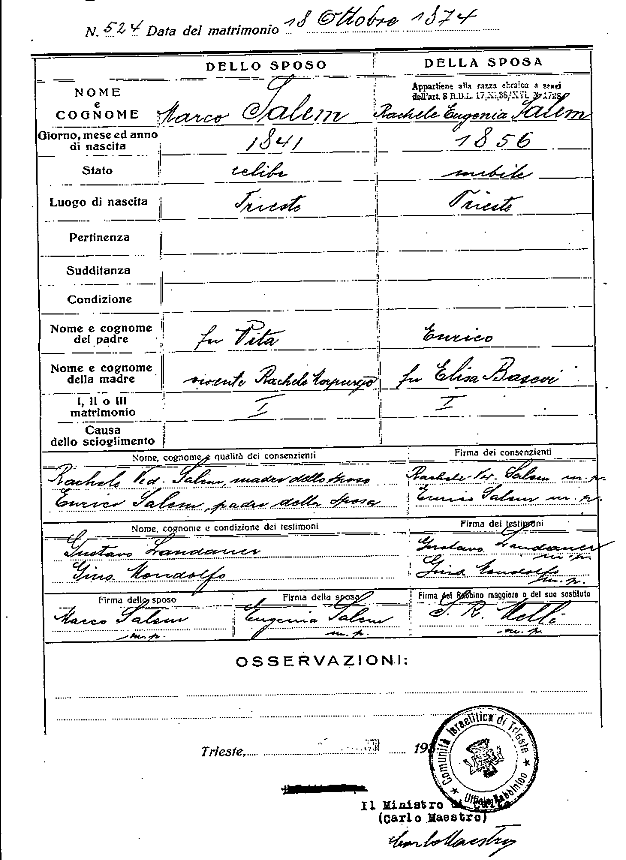 N. 524 Data del matrimonio 18 Ottobre 1874
DELLO SPOSO DELLA SPOSA
Appartiene alla razza ebraica a sensi
dell'art. 8 R.D.L. 17.XI.38/XVI. N. 1728
NOME
e
COGNOME Marco Salem Rachele Eugenia Salem
Giorno, mese ed anno
di nascita 1841 1856
Stato celibe nubile
Luogo di nascita Trieste Trieste
Pertinenza
Sudditanza
Condizione
Nome e cognome
del padre fu Vita Enrico
Nome e cognome
della madre vivente Rachele Morpurgo fu Elisa Basevi
I, II o III
matrimonio I I
Causa
dello scioglimento
Nome, cognome e qualità dei consenzienti Firma dei consenzienti
Rachele Ved. Salem madre dello sposo Rachele Ved. Salem m.p.
Enrico Salem padre della sposa Enrico Salem m.p.
Nome, cognome e condizione dei testimoni Firma dei testimoni
Gustavo Landauer Gustavo Landauer
Gino Mondolfo Gino Mondolfo
m.p.
Firma dello sposo Firma della sposa Firma del Rabbino maggiore o del suo sostituto
Marco Salem Eugenia Salem S. R. Melli
m.p. m.p. m.p.
OSSERVAZIONI:
Trieste, 193
Comunità Israelitica di Trieste
Ufficio Rabbinico
Il Ministro di Culto
(Carlo Maestro)
Carlo Maestro